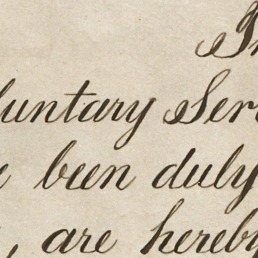 luntary Ser
been duly
, are hereby